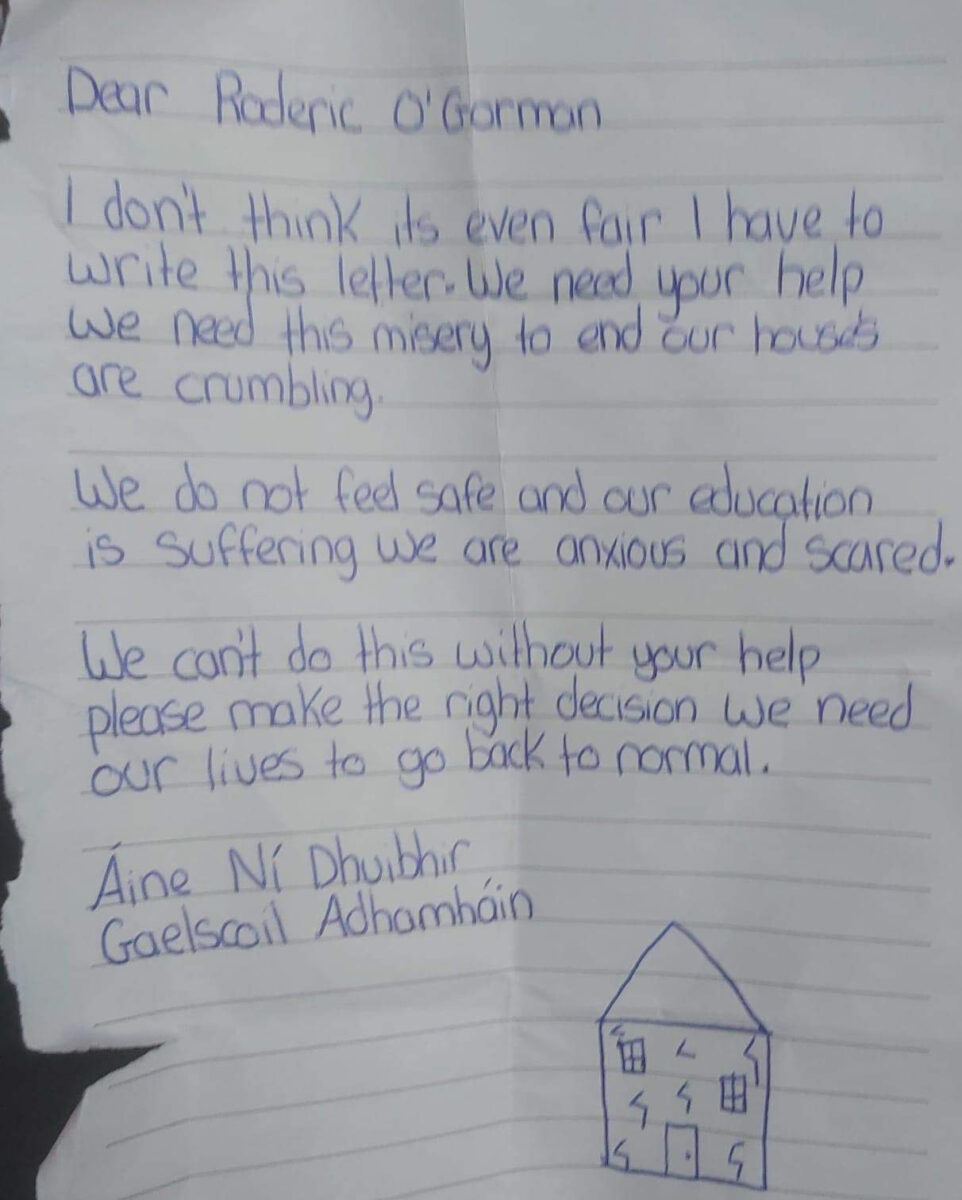 Dear Roderic O'Gorman
I don't think its even fair I have to
write this letter. We need your help
we need this misery to end our houses
are crumbling.
We do not feel safe and our education
is suffering we are anxious and scared.
We can't do this without your help
please make the right decision we need
our lives to go back to normal.
Áine Ní Dhuibhir
Gaelscoil Adhamháin